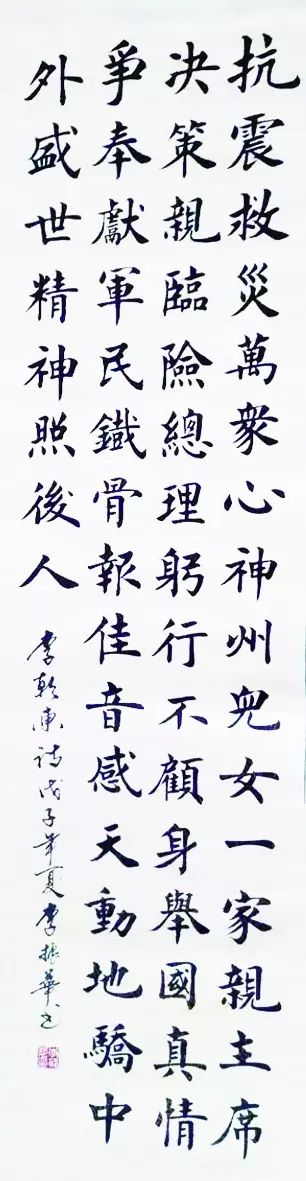 抗震救災萬衆心神州兒女一家親主席
决策親臨險總理躬行不顧身舉國真情
爭奉獻軍民鐵骨報佳音感天動地驕中
外盛世精神照後人
李乾東詩戊子年夏李振華書